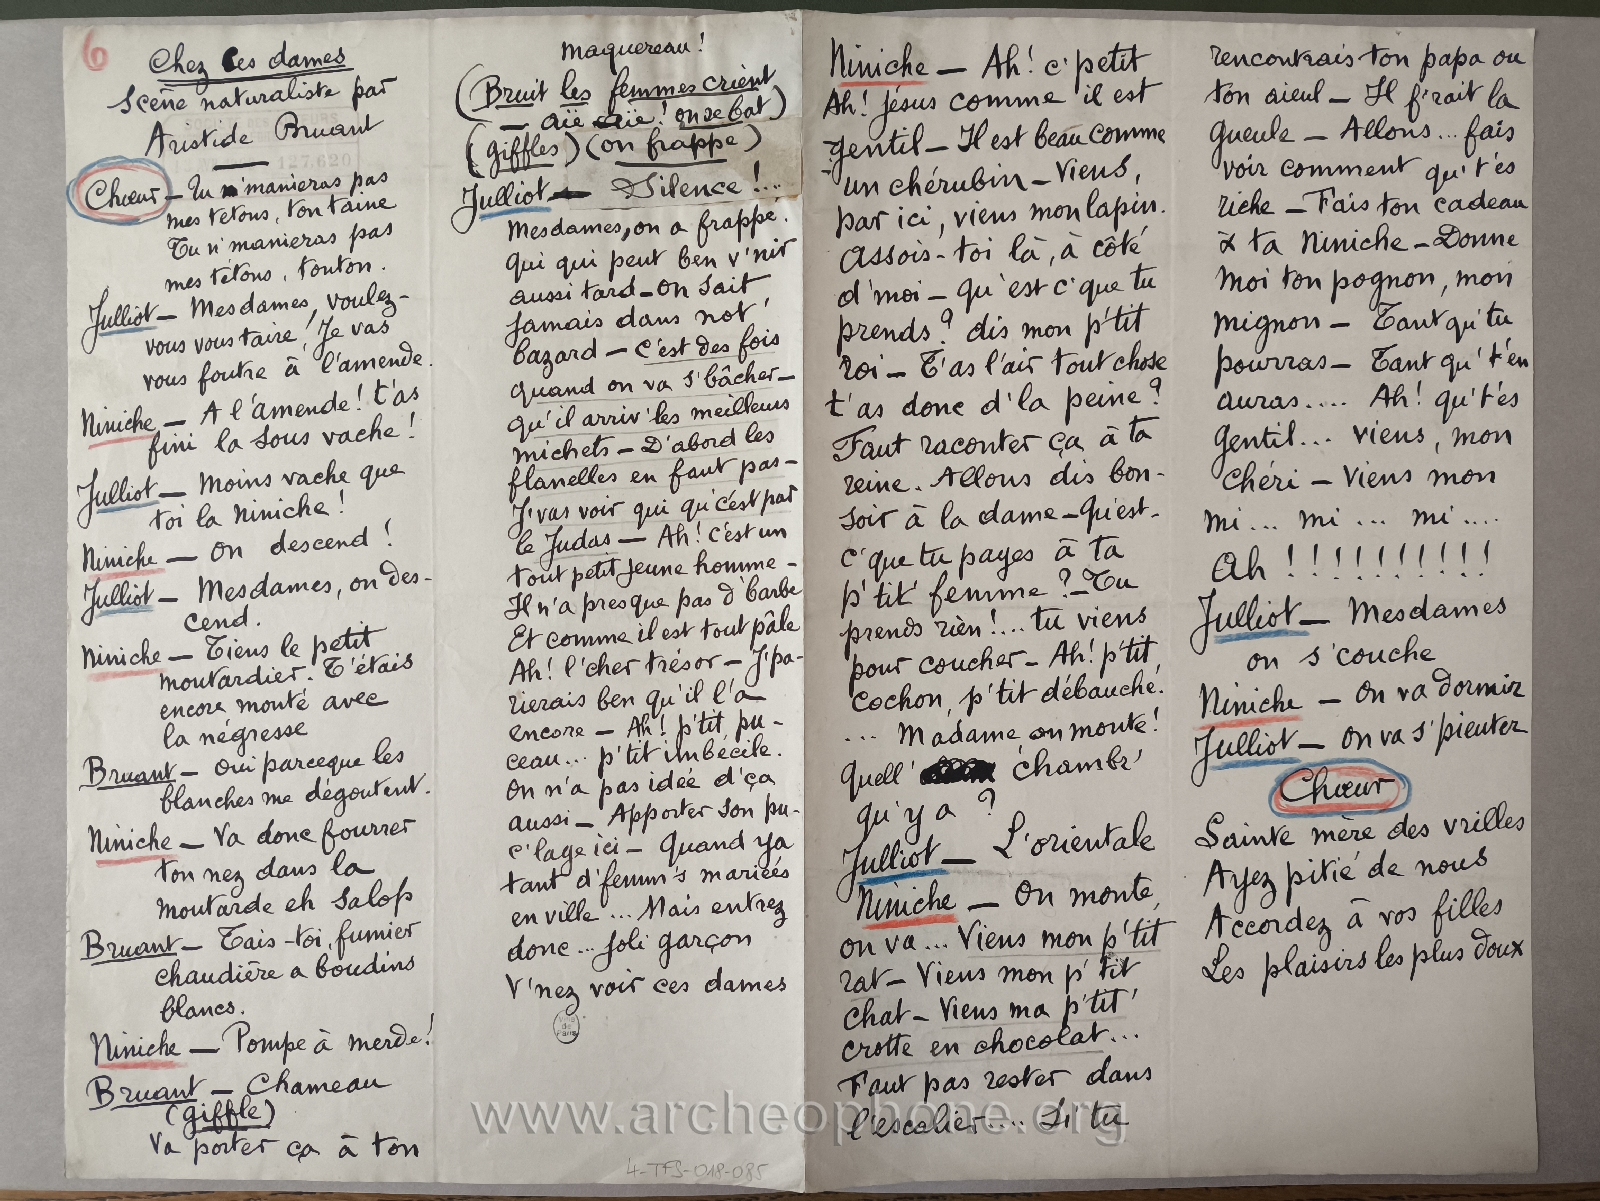 6
Chez ces dames
Scène naturaliste par
Aristide Bruant
127.620
Chœur – Tu n'manieras pas
mes tétons, ton taine
Tu n'manieras pas
mes tétons, tonton.
Julliot – Mesdames, voulez-
vous vous taire! Je vas
vous foutre à l'amende.
Niniche – A l'amende! t'as
fini la sous vache!
Julliot – Moins vache que
toi la Niniche!
Niniche – On descend!
Julliot – Mesdames, on des-
cend.
Niniche – Tiens le petit
moutardier. T'étais
encore monté avec
la négresse
Bruant – Oui parceque les
blanches me dégoutent.
Niniche – Va donc fourrer
ton nez dans la
moutarde eh salop
Bruant – Tais-toi, fumier
chaudière a boudins
blancs.
Niniche – Pompe à merde!
Bruant – Chameau
(giffle)
Va porter ça à ton
maquereau!
(Bruit les femmes crient
– aïe aïe! on se bat)
(giffles) (on frappe)
Julliot – Silence!...
Mesdames, on a frappé.
Qui qui peut ben v'nir
aussi tard – On sait
jamais dans not'
bazard – c'est des fois
quand on va s'bâcher –
qu'il arriv' les meilleurs
michets – D'abord les
flanelles en faut pas –
J'vas voir qui qu'c'est par
le Judas – Ah! c'est un
tout petit jeune homme –
Il n'a presque pas d'barbe
Et comme il est tout pâle
Ah! l'cher trésor – J'pa-
rierais ben qu'il l'a
encore – Ah! p'tit pu-
ceau... p'tit imbécile.
On n'a pas idée d'ça
aussi – Apporter son pu-
c'lage ici – Quand ya
tant d'femm's mariées
en ville... Mais entrez
donc... joli garçon
V'nez voir ces dames
Ville
de
Paris
Niniche – Ah! c'petit
Ah! Jésus comme il est
gentil – Il est beau comme
un chérubin – Viens,
par ici, viens mon lapin.
Assois-toi là, à côté
d'moi – qu'est c'que tu
prends? dis mon p'tit
roi – T'as l'air tout chose
t'as donc d'la peine?
Faut raconter ça à ta
reine. Allons dis bon-
soir à la dame – Qu'est-
c'que tu payes à ta
p'tit' femme? – Tu
prends rien!... tu viens
pour coucher – Ah! p'tit
cochon, p'tit débauché.
... Madame on monte!
Quell' chambr'
qu'y a?
Julliot – L'orientale
Niniche – On monte,
on va... Viens mon p'tit
rat – Viens mon p'tit
chat – Viens ma p'tit'
crotte en chocolat...
Faut pas rester dans
l'escalier.... Si tu
rencontrais ton papa ou
ton aieul – Il f'rait la
gueule – Allons... fais
voir comment qu't'es
riche – Fais ton cadeau
à ta Niniche – Donne
moi ton pognon, mon
mignon – Tant qu'tu
pourras – Tant qu't'en
auras.... Ah! qu't'es
gentil... viens, mon
chéri – Viens mon
mi... mi... mi....
Ah!!!!!!!!!!
Julliot – Mesdames
on s'couche
Niniche – On va dormir
Julliot – On va s'pieuter
Chœur
Sainte mère des vrilles
Ayez pitié de nous
Accordez à vos filles
Les plaisirs les plus doux
www.archeophone.org
4-TFS-018-085